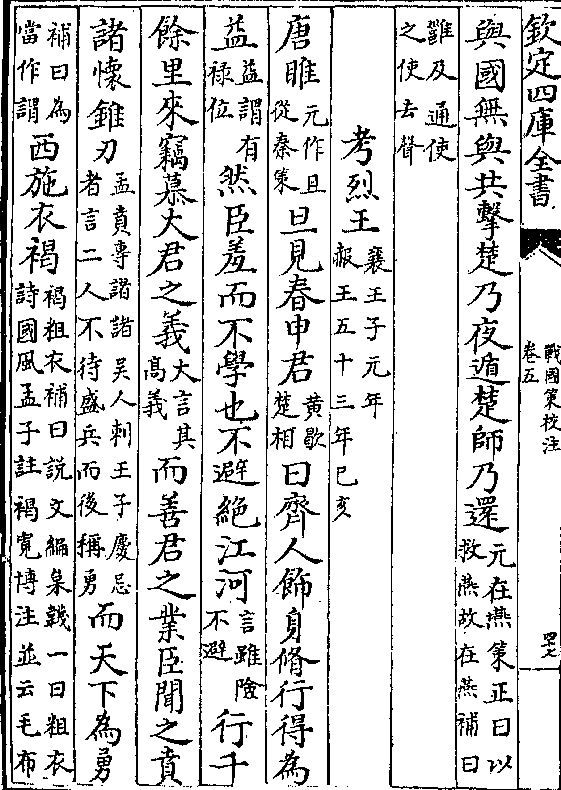 欽定四庫全書
戰國策校注
卷五
與國無與共擊楚乃夜遁楚師乃還元在燕策正曰以救燕故在燕補曰
難及通使之使去聲
考烈王襄王子元年赧王五十三年己亥
唐睢元作且從秦策旦見春申君黄歇楚相曰齊人飾身脩行得為
益益謂有祿位然臣羞而不學也不避絶江河言雖險不避行千
餘里來竊慕大君之義大言其髙義而善君之業臣聞之賁
諸懷錐刃孟賁專諸諸吳人刺王子慶忌者言二人不待盛兵而後稱勇而天下為勇
補曰為當作謂西施衣褐褐粗衣補曰説文編枲韤一曰粗衣詩國風孟子註褐寛博注並云毛布